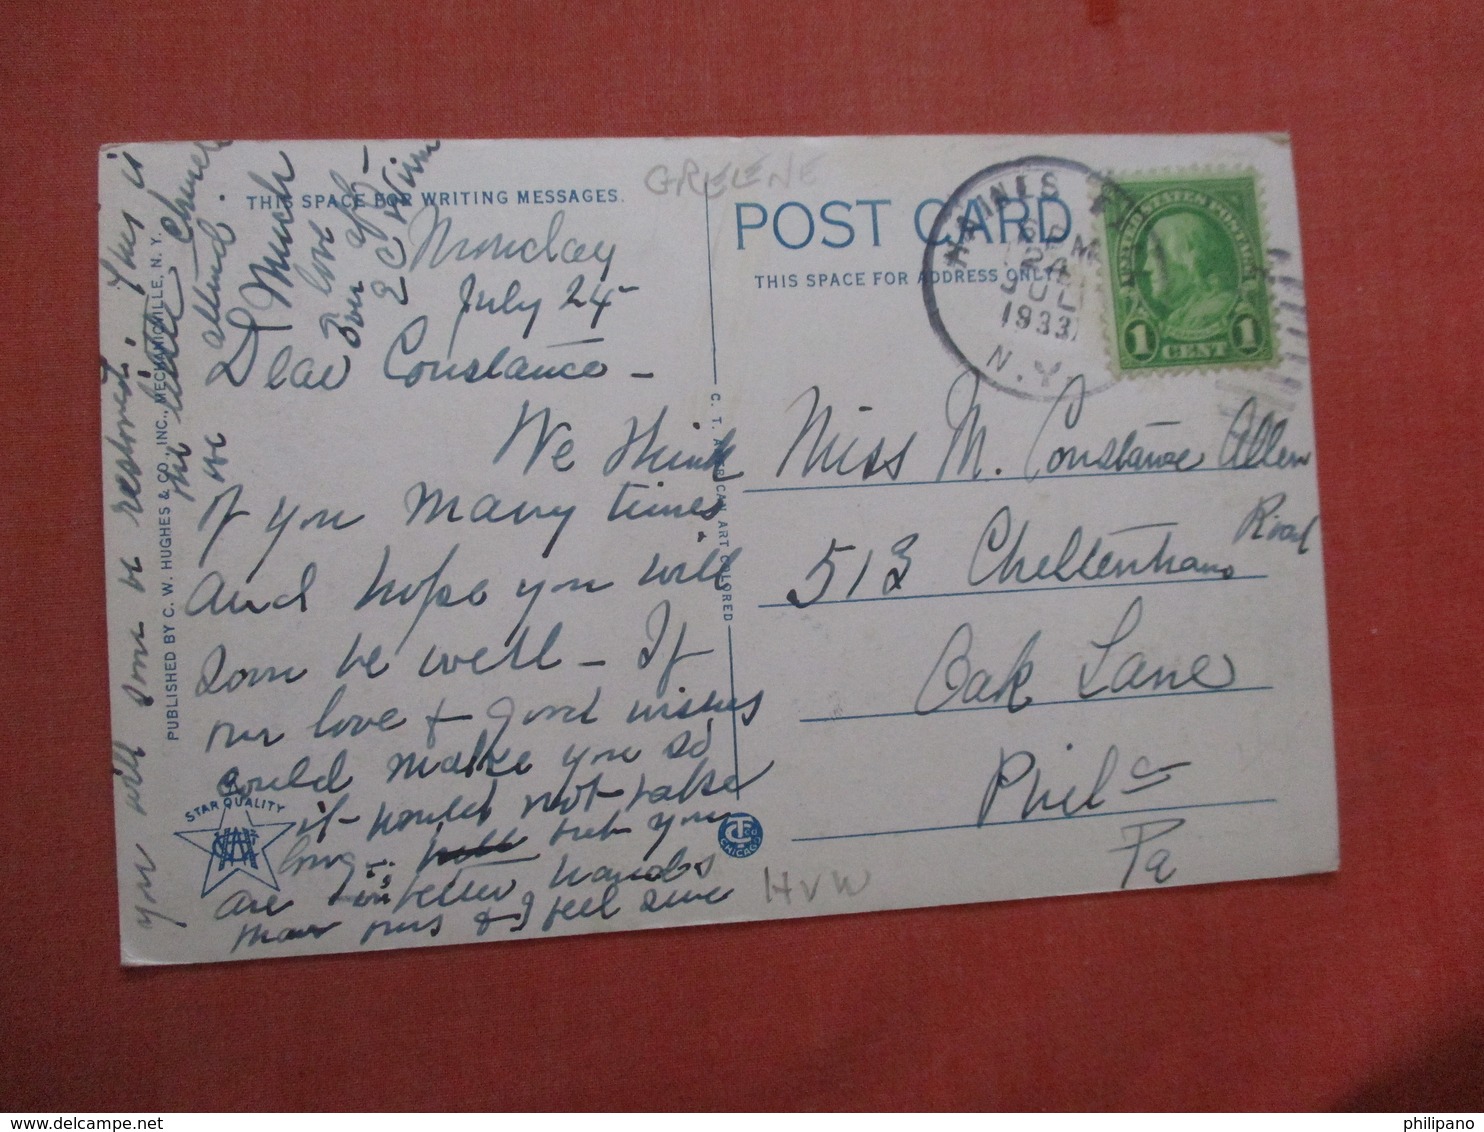 THIS SPACE FOR WRITING MESSAGES.
GREENE
Monday
July 24-
Dear Constance -
We think
of you many times
and hope you will
soon be well - If
our love & good wishes
could make you so
it would not take
long -. but you
are in better hands
than ours & I feel sure
you will soon be restored. This is
the little Church
we attend.
Much
love
Ever aff-
POST CARD
THIS SPACE FOR ADDRESS ONLY
HAINES
PM
24
JUL
1933
N.Y.
UNITED STATES POSTAGE
1 CENT 1
Miss M. Constance Allen
513 Cheltenham Road
Oak Lane
Phila
Pa
PUBLISHED BY C. W. HUGHES & CO., INC., MECHANICVILLE, N. Y.
C. T. AMERICAN ART COLORED
STAR QUALITY
CT CO
CHICAGO
HVW
philipano